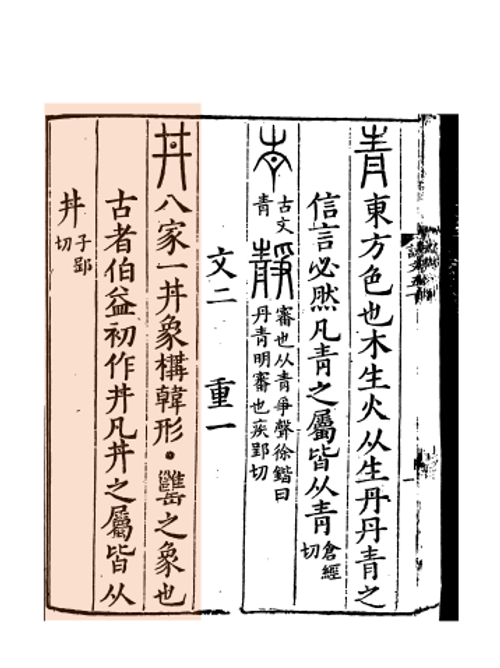 青 東方色也木生火从生丹丹青之
信言必然凡青之屬皆从青 倉經切
𡴑 古文青 靜 審也从青爭聲徐鍇曰丹青明審也疾郢切
文二 重一
丼 八家一丼象構韓形·𦉥之象也
古者伯益初作丼凡丼之屬皆从
丼 子郢切